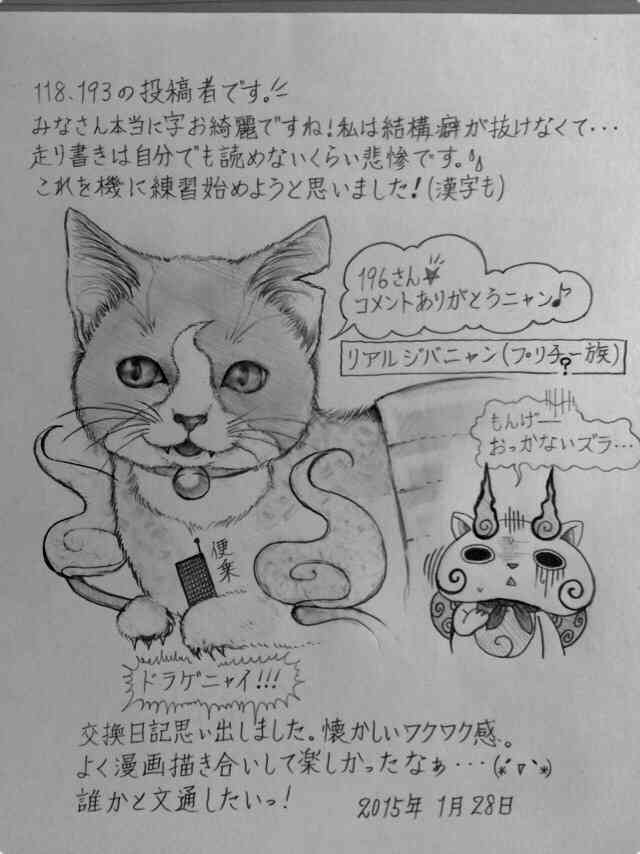 118.193の投稿者です。
みなさん本当に字お綺麗ですね!私は結構癖が抜けなくて・・・
走り書きは自分でも読めないくらい悲惨です。
これを機に練習始めようと思いました!(漢字も)
196さん★
コメントありがとうニャン♪
リアルジバニャン(プリチー?族)
もんげー
おっかないズラ・・・
便楽
ドラゲニャイ!!!
交換日記思い出しました。懐かしいワクワク感。
よく漫画描き合いして楽しかったなぁ・・・(*´∇`*)
誰かと文通したいっ!
2015年 1月28日